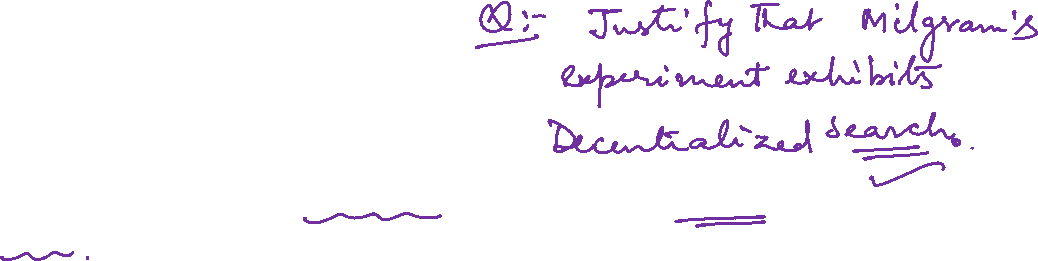 Q:- Justify that Milgram's
experiment exhibits
Decentralized search.